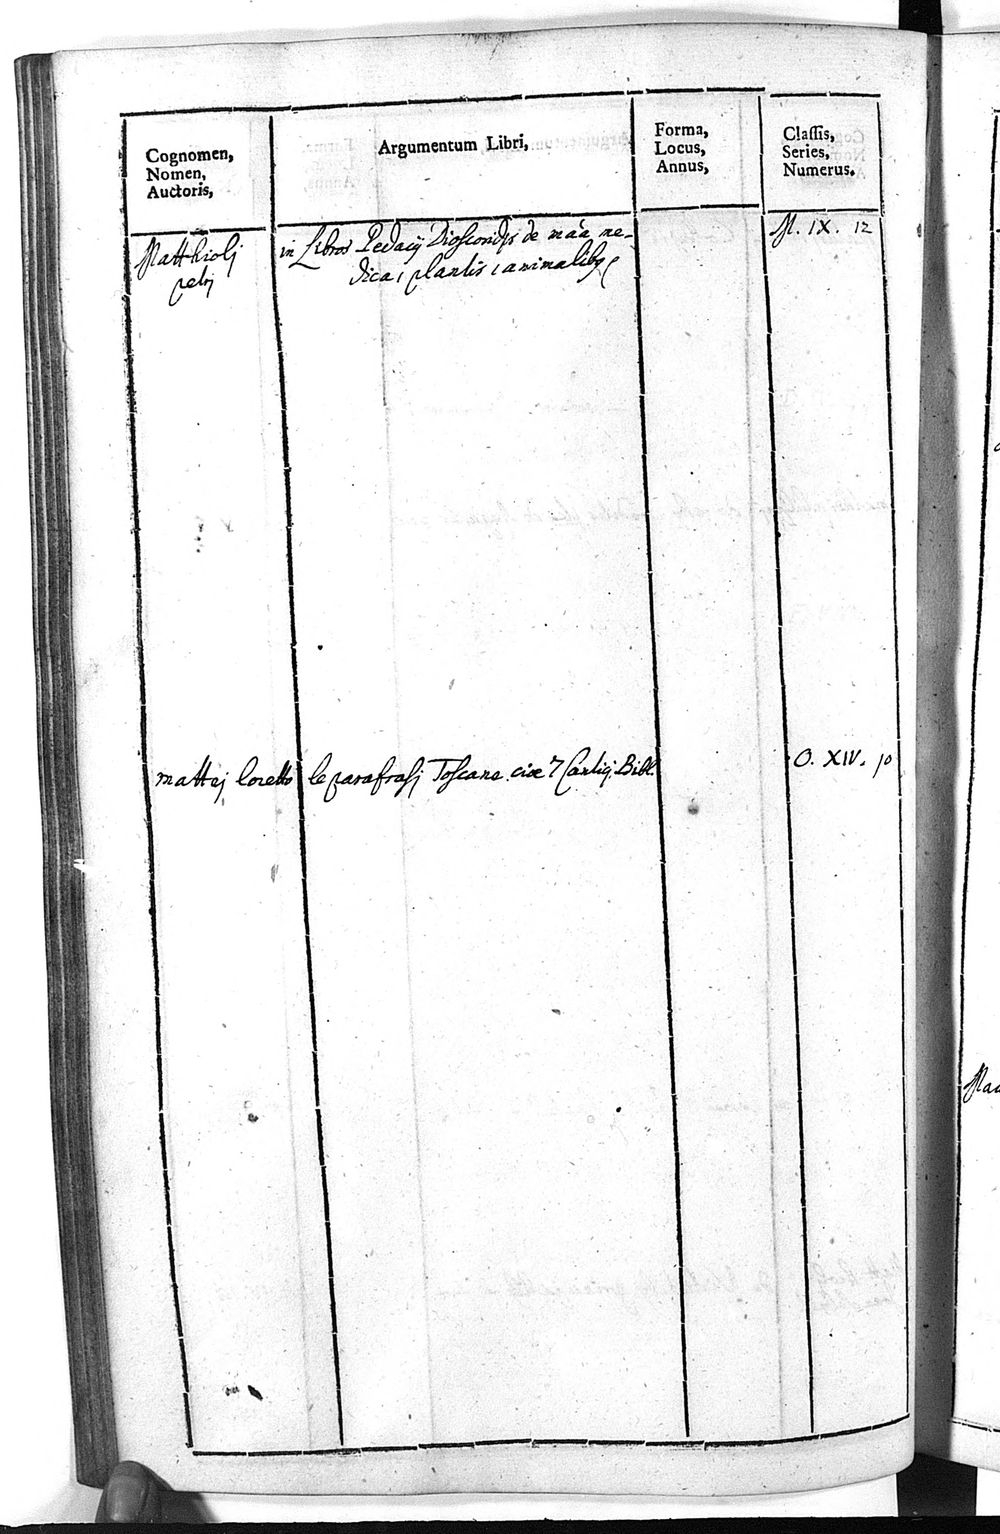 Cognomen,
Nomen,
Auctoris,
Argumentum Libri,
Forma,
Locus,
Annus,
Classis,
Series,
Numerus.
Matthioli
petri
in Libros Pedacij Dioscoridis de maâ me-
dica, plantis, animalibq
M. IX. 12
mattej loretto
le parafrasi Toscane cioe 7 Cantici Bibl.
O. XIV. 10